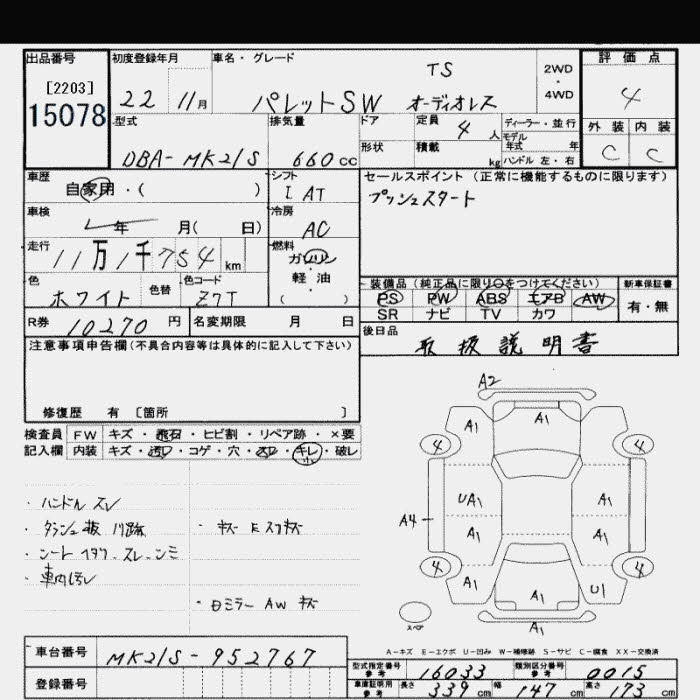 出品番号 初度登録年月 車名・グレード 評価点
[2203] 22 11月 パレットSW TS オーディオレス 2WD・4WD 4
15078
型式 排気量 ドア 定員 4人 ディーラー・並行 外装 内装
DBA-MK21S 660cc 形状 積載 kg モデル年式 年 ハンドル 左・右 C C
車歴 自家用・( ) シフト I AT セールスポイント (正常に機能するものに限ります)
プッシュスタート
車検 年 月( 日) 冷房 AC
走行 11万1千754km 燃料 ガソリン・軽油 ( )
色 ホワイト 色替 色コード Z7T 装備品 (純正品に限り○をつけてください) 新車保証書
PS PW ABS エアB AW 有・無
SR ナビ TV カワ
R券 10270円 名変期限 月 日 後日品
取扱説明書
注意事項申告欄 (不具合内容等は具体的に記入して下さい)
修復歴 有 [箇所 ]
検査員 FW キズ・飛石・ヒビ割・リペア跡・×要
記入欄 内装 キズ・汚レ・コゲ・穴・スレ・キレ・破レ
・ハンドル スレ
・シート
・車内汚レ
・キズ
・日ミラー AW キズ
A2
A1 A1 A1
4 4
UA1 A1
A4 A1 A1
4 4
A1 A1 U1
スペア A1
A-キズ E-エクボ U-凹み W-補修跡 S-サビ C-腐食 XX-交換済
車台番号 MK21S-952767
型式指定番号 参考 16033 類別区分番号 参考 0015
登録番号 車庫証明用 参考 長さ 339cm 幅 147cm 高さ 173cm